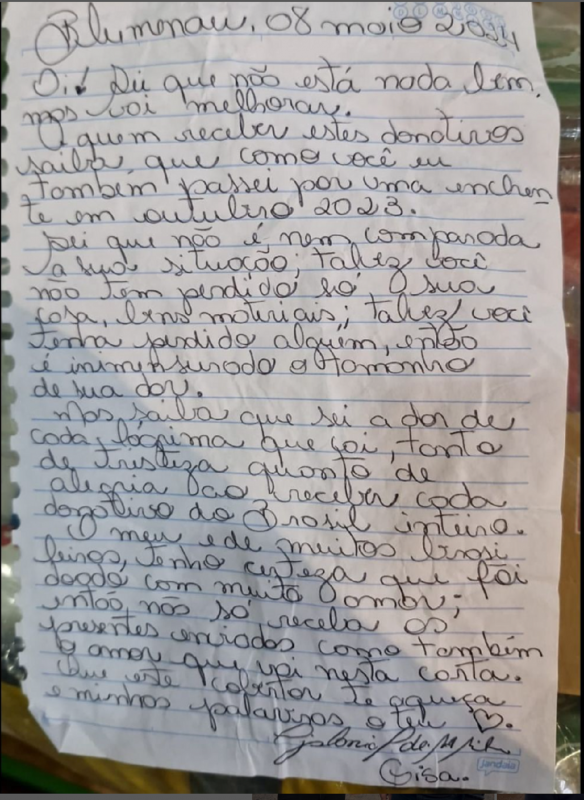 Blumenau, 08 maio 2024
Oi! Sei que não está nada bem,
mas vai melhorar.
A quem receber estes donativos
saiba que como você eu
também passei por uma enchen
te em outubro 2023.
Sei que não é nem comparada
a sua situação; talvez você
não tem perdido só a sua
casa, bens materiais; talvez você
tenha perdido alguém, então
é inimensurado o tamanho
de sua dor.
Mas, saiba que sei a dor de
cada lágrima que cai, tanto
de tristeza quanto de
alegria ao receber cada
donativo do Brasil inteiro.
O meu e de muitos brasi
leiros, tenho certeza que foi
doado com muito amor;
então não só receba os
presentes enviados como também
o amor que vai nesta carta.
Que este cobertor te aqueça
e minhas palavras o teu ♡.
Gisa.
jandaia